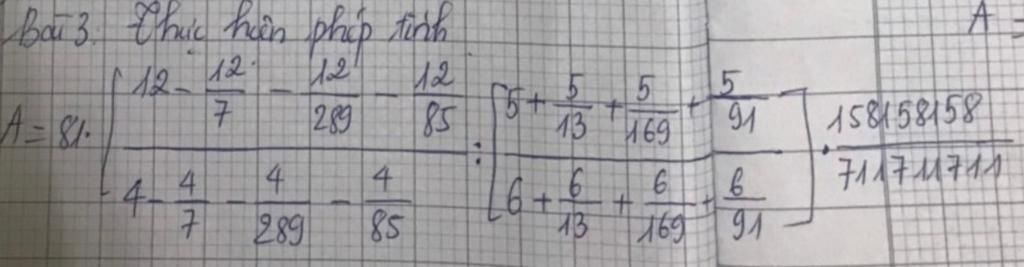 Bài 3. Thực hiện phép tính
A =
A = 81. [ (12 - 12/7 - 12/289 - 12/85) / (4 - 4/7 - 4/289 - 4/85) : (5 + 5/13 + 5/169 + 5/91) / (6 + 6/13 + 6/169 + 6/91) ] . 158158158/711711711